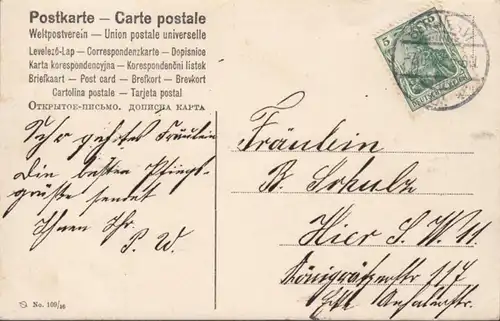 Postkarte – Carte postale
Weltpostverein – Union postale universelle
Levelező-Lap – Correspondenzkarte – Dopisnice
Karta korespondencyjna – Korespondenční listek
Briefkaart – Post card – Brefkort – Brevkort
Cartolina postale – Tarjeta postal
Открытое письмо. дописна карта
Sehr geehrtes Fräulein
Die besten Pfingst-
grüße sendet
Ihnen Ihr
P. W.
5
Fräulein
B. Schulz
Hier S. W. 11
Königgrätzerstr 117
Ecke Anhalterstr.
No. 109/06